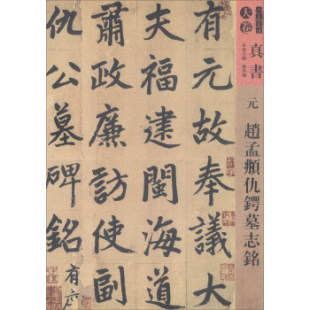 有元故奉議大
夫福建閩海道
肅政廉訪使副
仇公墓碑銘
有元
大卷
真書
元
趙孟頫仇鍔墓志銘